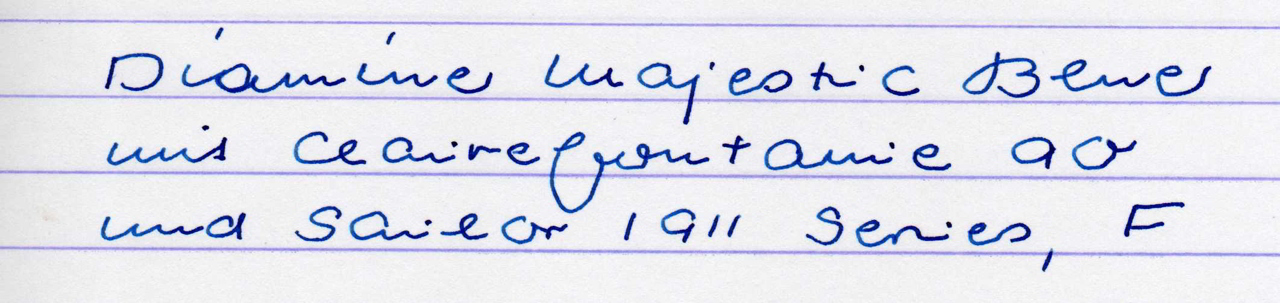 Diamine Majestic Blue
mit Clairefontaine 90
und Sailor 1911 Series, F